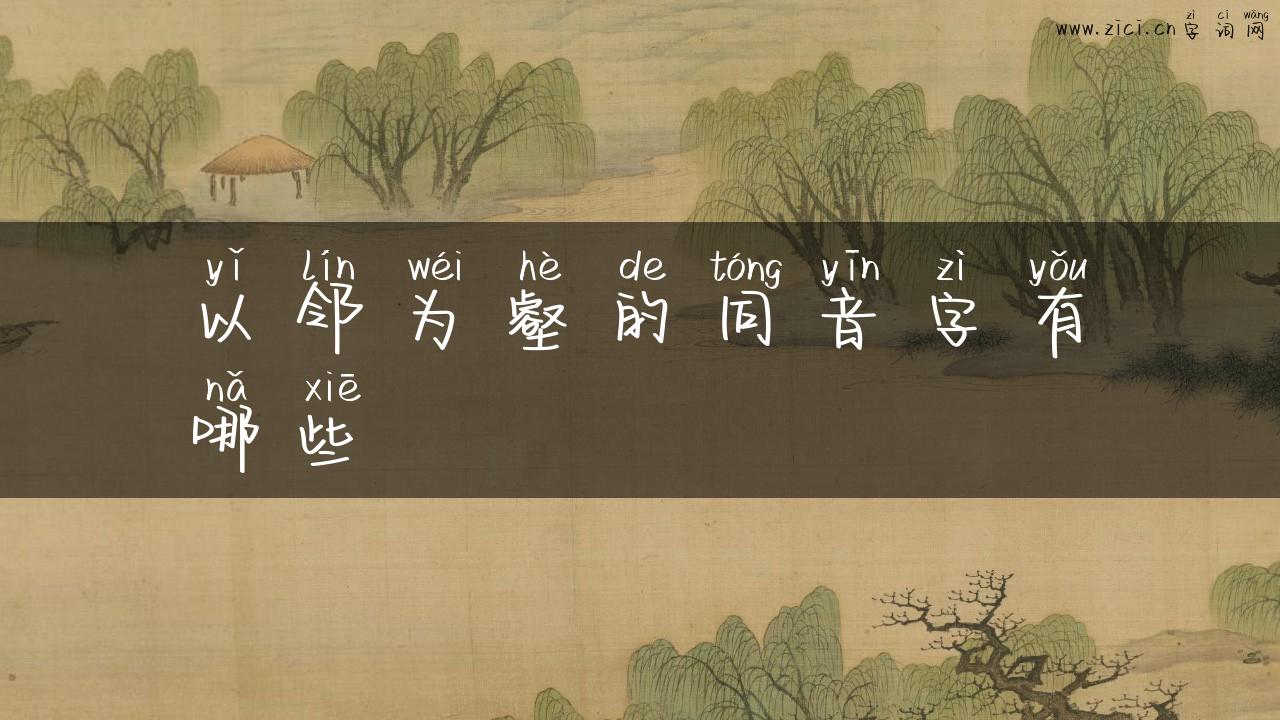 zì cí wǎng
www.zici.cn 字 词 网
yǐ lín wéi hè de tóng yīn zì yǒu
以 邻 为 壑 的 同 音 字 有
nǎ xiē
哪 些